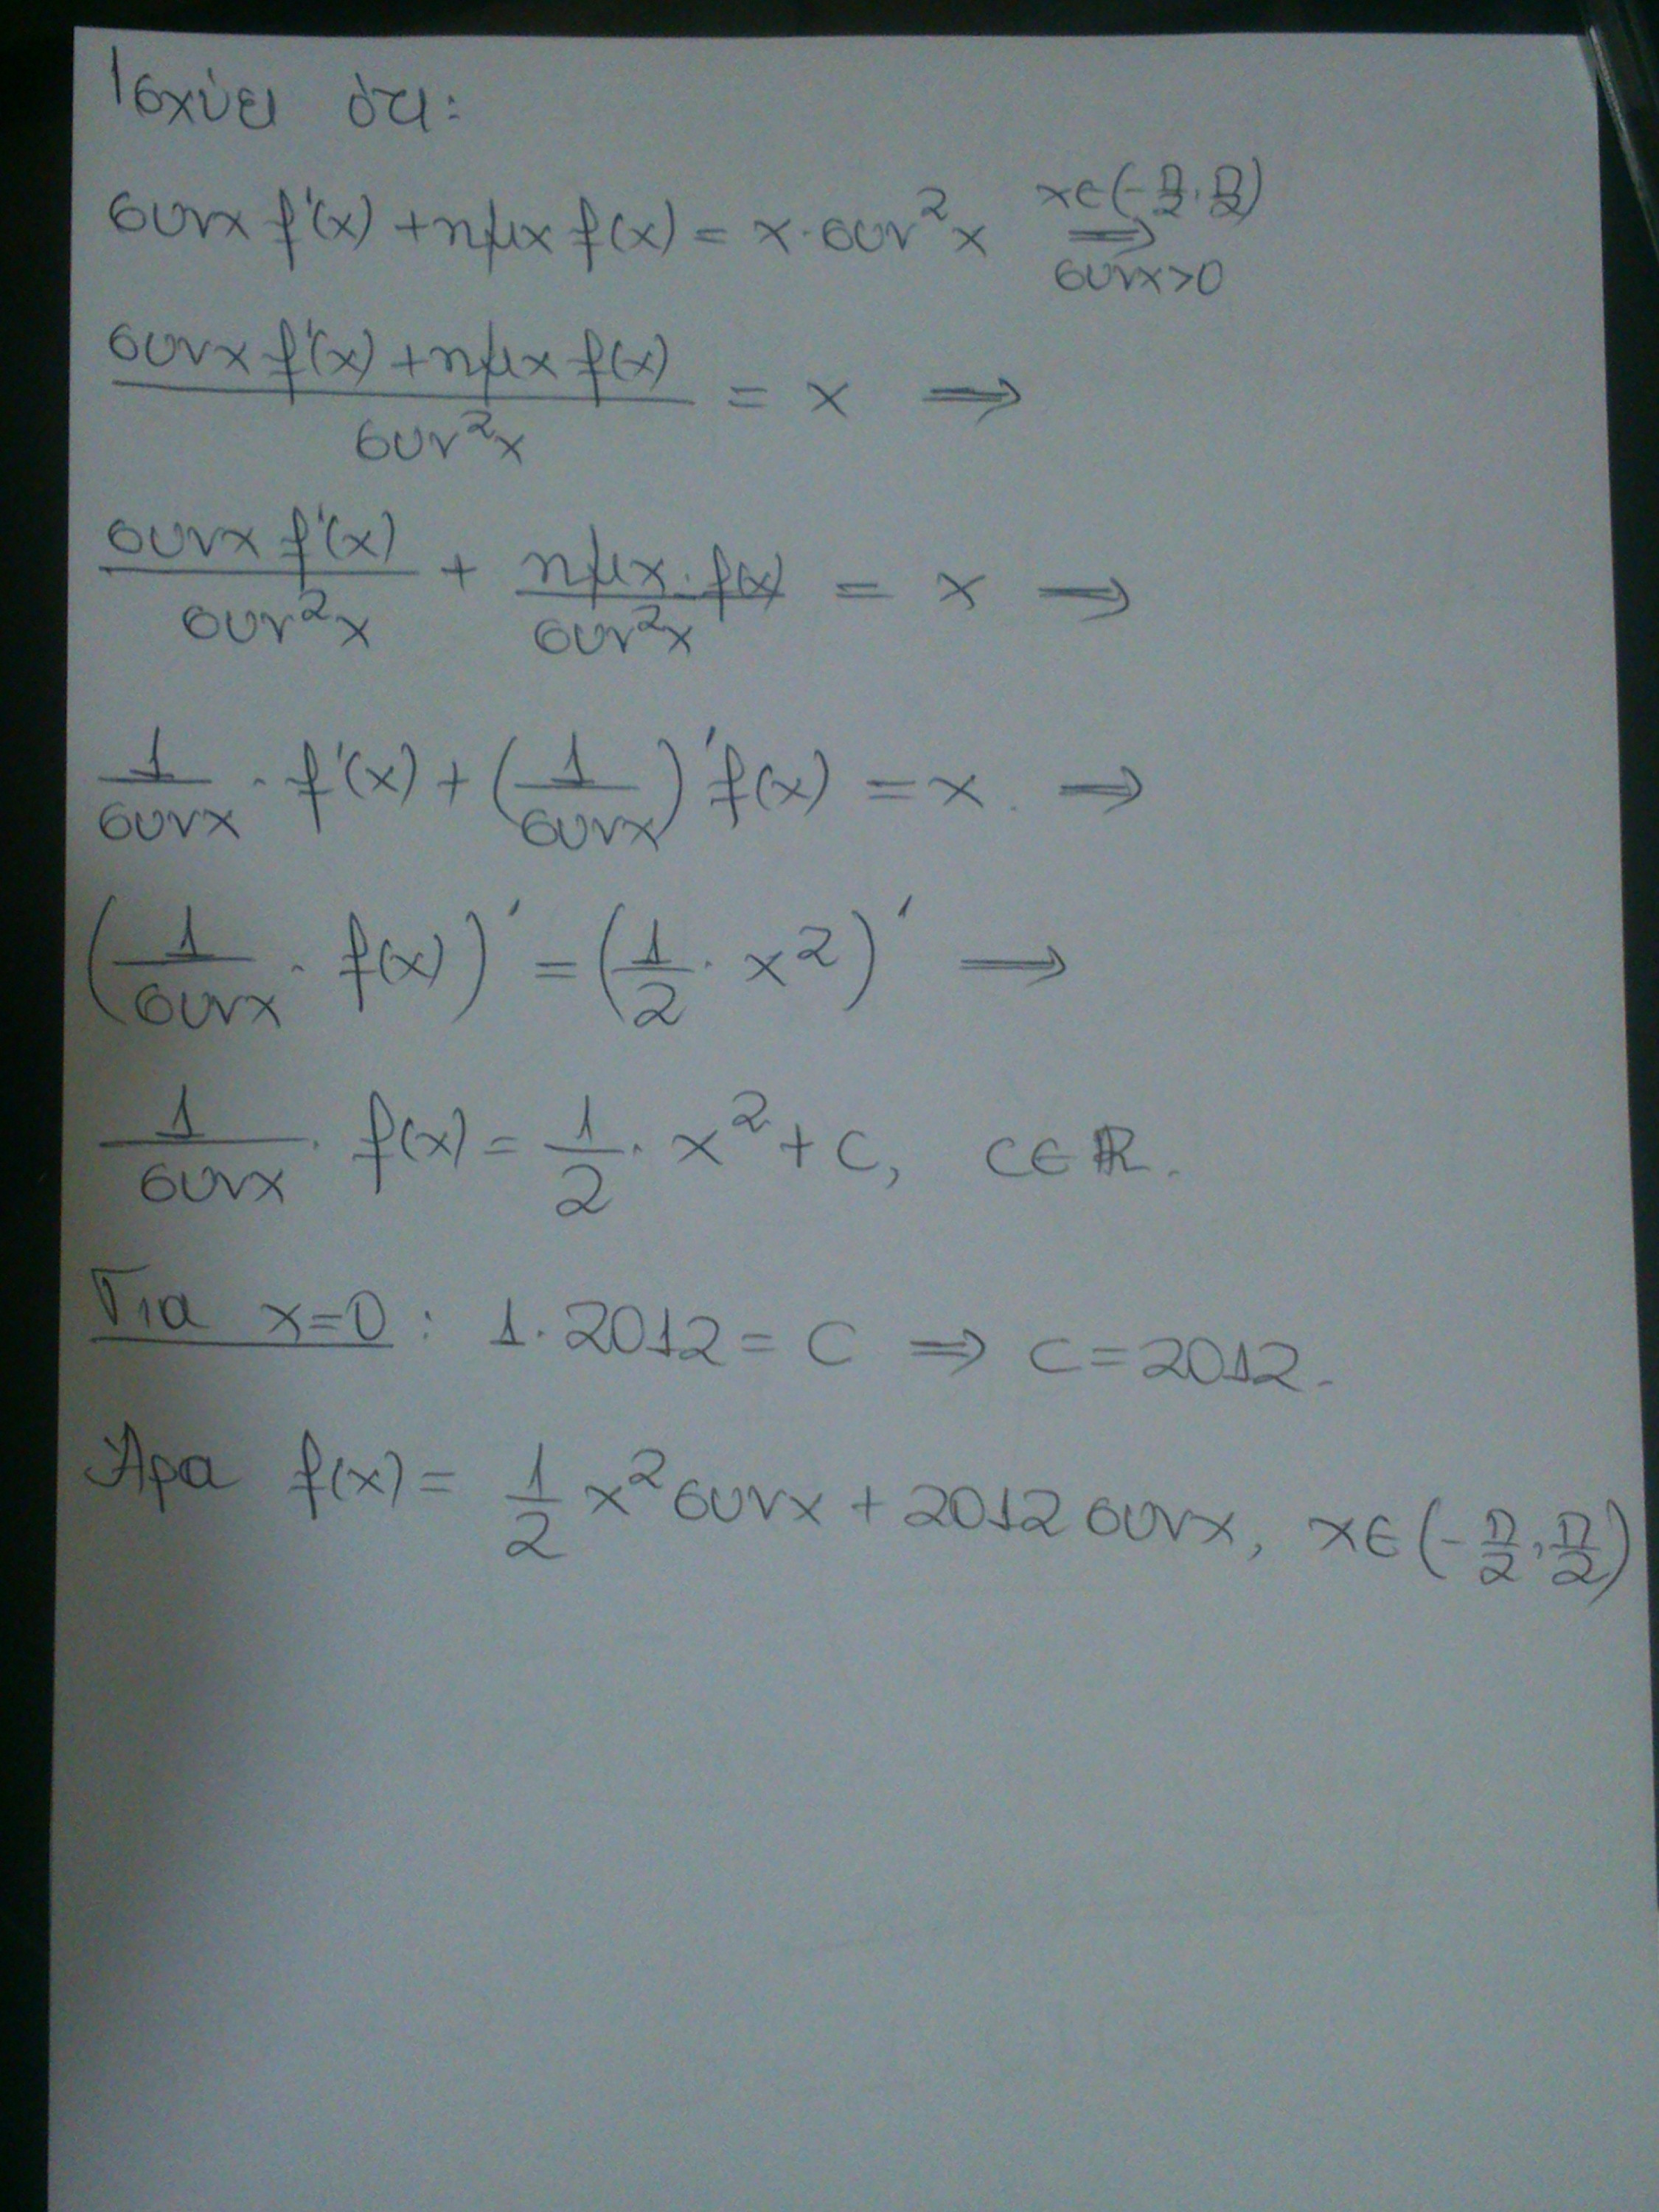 Ισχύει ότι:
συνx f'(x) + ημx f(x) = x · συν²x  x∈(-π/2, π/2) ⟹ συνx>0
(συνx f'(x) + ημx f(x))/συν²x = x ⟹
(συνx f'(x))/συν²x + (ημx · f(x))/συν²x = x ⟹
1/συνx · f'(x) + (1/συνx)' f(x) = x. ⟹
(1/συνx · f(x))' = (1/2 · x²)' ⟹
1/συνx · f(x) = 1/2 · x² + c, c∈ℝ.
Για x=0 : 1 · 2012 = c ⟹ c = 2012.
Άρα f(x) = 1/2 x² συνx + 2012 συνx, x∈(-π/2, π/2)